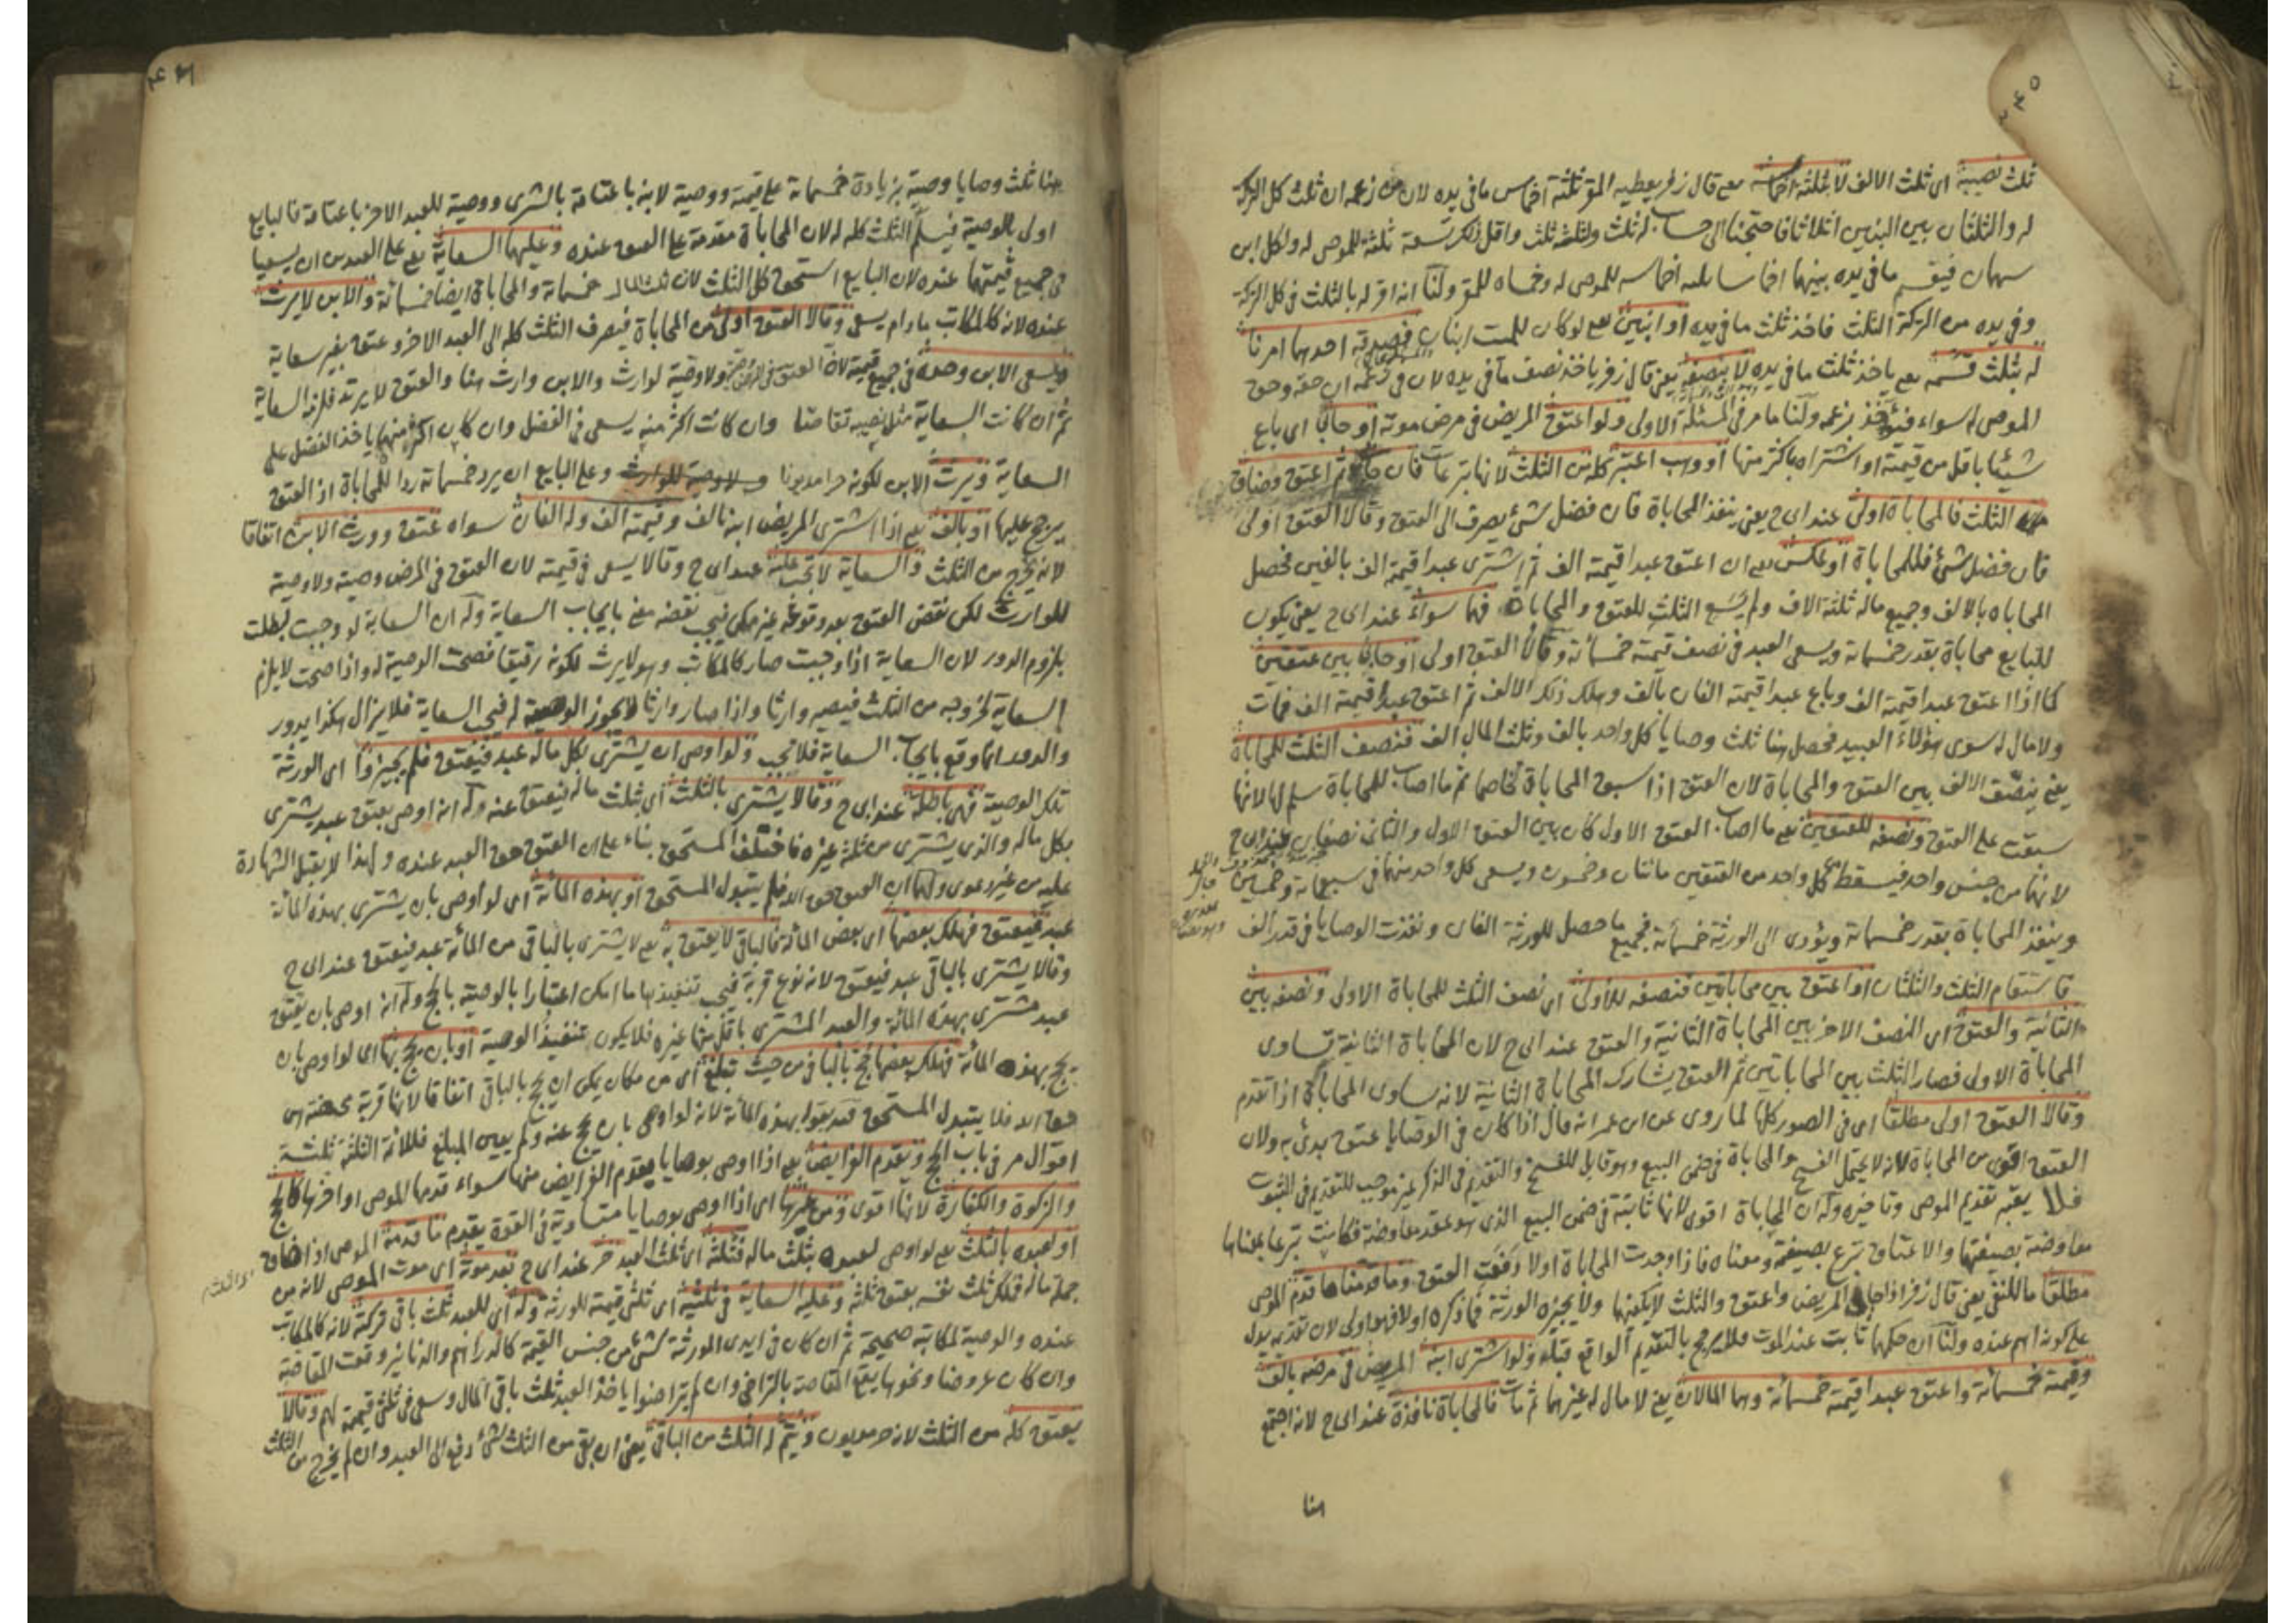 ٢٤٥
ثلث نصيبه اى ثلث الالف لا ثلثة اخماسه يعنى قال زفر يعطيه المقر ثلثة اخماس ما فى يده لان من زعمه ان ثلث كل التركة
له والثلثان بين البنين اثلاثا فاحتجنا الى حساب له ثلث ولثلثه ثلث واقل ذلك تسعة ثلثة للموصى له ولكل ابن
سهمان فيقسم ما فى يده بينهما اخماسا ثلثة اخماسه للموصى له وخمساه للمقر ولنا انه اقر له بالثلث فى كل التركة
وفى يده من التركة الثلث فاخذ ثلث ما فى يده او ابنين يعنى لو كان للميت ابنان فصدقه احدهما امرنا
له بثلث قسمه يعنى ياخذ ثلث ما فى يده لا بنصفه يعنى قال زفر ياخذ نصف ما فى يده لان فى زعمه ان حقه وحق
الموصى له سواء فيؤخذ بزعمه ولنا ما مر فى المسئلة الاولى ولو اعتق المريض فى مرض موته او حابى اى باع
شيئا باقل من قيمته او اشتراه باكثر منها او وهب اعتبر كله من الثلث لانها تبرعات فان حابى ثم اعتق وضاق
الثلث فالمحاباة اولى عند ابى ح يعنى ينفذ المحاباة فان فضل شئ يصرف الى العتق وقالا العتق اولى
فان فضل شئ فللمحاباة او عكس يعنى ان اعتق عبدا قيمته الف ثم اشترى عبدا قيمته الف بالفين فحصل
المحاباه بالالف وجميع ماله ثلثة الاف ولم يسع الثلث للعتق والمحاباة فهما سواء عند ابى ح يعنى يكون
للبايع محاباة بقدر خمسمائة ويسعى العبد فى نصف قيمته خمسمائة وقالا العتق اولى او حابى بين عتقين
كما اذا اعتق عبدا قيمته الف وباع عبدا قيمته الفان بالف وهلك ذلك الالف ثم اعتق عبدا قيمته الف فمات
ولا مال له سوى هؤلاء العبيد فحصل هنا ثلث وصايا كل واحد بالف وثلث المال الف فنصف الثلث للمحاباة
يعنى ينصف الالف بين العتق والمحاباة لان العتق اذا سبق المحاباة تخاصما ثم ما اصاب للمحاباة سلم لها لانها
سبقت على العتق ونصفه للعتقين يعنى ما اصاب العتق الاول كان بين العتق الاول والثانى نصفان عند ابى ح
لانهما من جنس واحد فيسقط عن كل واحد من العتقين مائتان وخمسون ويسعى كل واحد منهما فى سبعمائة وخمسين
وينفذ المحاباة بقدر خمسمائة ويؤدى الى الورثة خمسمائة فجميع ما حصل للورثة الفان ونفذت الوصايا فى قدر الف
فاستقام الثلث والثلثان او اعتق بين محاباتين فنصفه للاولى اى نصف الثلث للمحاباة الاولى ونصفه بين
الثانية والعتق اى النصف الاخر بين المحاباة الثانية والعتق عند ابى ح لان المحاباة الثانية تساوى
المحاباة الاولى فصار الثلث بين المحاباتين ثم العتق يشارك المحاباة الثانية لانه يساوى المحاباة اذا تقدم
وقالا العتق اولى مطلقا اى فى الصور كلها لما روى عن ابن عمر انه قال اذا كان فى الوصايا عتق بدئ به ولان
العتق اقوى من المحاباة لانه لا يحتمل الفسخ والمحاباة فى ضمن البيع وهو قابل للفسخ والتقديم فى الذكر غير موجب للتقديم فى الثبوت
فلا يعتبر تقديم الموصى وتاخيره وله ان المحاباة اقوى لانها ثابتة فى ضمن البيع الذى هو عقد معاوضة فكانت تبرعا بمعناها
معاوضة بصيغتها والاعتاق تبرع بصيغته ومعناه فاذا وجدت المحاباة اولا دفعت العتق وما قدمناها قدم الموصى
مطلقا ما للنفى يعنى قال زفر اذا حابى المريض واعتق والثلث لا يكفيهما ولا يجيزه الورثة فما ذكره اولا فهو اولى لان تقديمه يدل
على كونه اهم عنده ولنا ان حكمها ثابت عند الموت فلا يرجح بالتقديم الواقع قبله ولو اشترى ابنه المريض فى مرضه بالف
وقيمته خمسمائة واعتق عبدا قيمته خمسمائة وهما المالان يعنى لا مال له غيرهما ثم مات فالمحاباة نافذة عند ابى ح لانه اجتمع
هنا
هنا ثلث وصايا وصية بزيادة خمسمائة على قيمته ووصية لابنه باعتاقه بالشرى ووصية للعبد الاخر باعتاقه فالبايع
اولى بالوصية فيسلم الثلث كله له لان المحاباة مقدمة على العتق عنده وعليهما السعاية يعنى على العبدين ان يسعيا
فى جميع قيمتهما عنده لان البايع استحق كل الثلث لان ثلث المال خمسمائة والمحاباة ايضا خمسمائة والابن لا يرث
عنده لانه كالمكاتب ما دام يسعى وقالا العتق اولى من المحاباة فيصرف الثلث كله الى العبد الاخر وعتق بغير سعاية
ويسعى الابن وحده فى جميع قيمته لان العتق فى المرض وصية ولا وصية لوارث والابن وارث هنا والعتق لا يرتد فلزمه السعاية
ثم ان كانت السعاية مثل نصيبه تقاصا وان كانت اكثر منه يسعى فى الفضل وان كان اكثر منها ياخذ الفضل على
السعاية ويرث الابن لكونه حرا مديونا وعلى البايع ان يرد خمسمائة ردا للمحاباة اذ العتق
يرجح عليها او بالف يعنى اذا اشترى المريض ابنه بالف وقيمته الف وله الفان سواه عتق وورث الابن اتفاقا
لانه يخرج من الثلث والسعاية لا تجب عليه عند ابى ح وقالا يسعى فى قيمته لان العتق فى المرض وصية ولا وصية
للوارث لكن نقض العتق بعد وقوعه غير ممكن فيجب نقضه معنى بايجاب السعاية وله ان السعاية لو وجبت لبطلت
بلزوم الدور لان السعاية اذا وجبت صار كالمكاتب وهو لا يرث لكونه رقيقا فصحت الوصية له واذا صحت لا يلزم
السعاية لخروجه من الثلث فيصير وارثا واذا صار وارثا لا يجوز الوصية له فيجب السعاية فلا يزال هكذا يدور
والدور انما وقع بايجاب السعاية فلا تجب ولو اوصى ان يشترى بكل ماله عبد فيعتق فلم يجيزوا اى الورثة
تلك الوصية فهى باطلة عند ابى ح وقالا يشترى بالثلث اى بثلث ماله فيعتق عنه وله انه اوصى بعتق عبد يشترى
بكل ماله والذى يشترى من ثلثه غيره فاختلف المستحق بناء على ان العتق حق العبد عنده ولهذا لا يقبل الشهادة
عليه من غير دعوى ولهما ان العتق حق الله فلم يتبدل المستحق او بهذه المائة اى لو اوصى بان يشترى بهذه المائة
عبد فيعتق فهلك بعضها اى بعض المائة فالباقى لا يعتق به يعنى لا يشترى بالباقى من المائة عبد فيعتق عند ابى ح
وقالا يشترى بالباقى عبد فيعتق لانه نوع قربة فيجب تنفيذها ما امكن اعتبارا بالوصية بالحج وله انه اوصى بان يعتق
عبد مشترى بهذه المائة والعبد المشترى باقل منها غيره فلا يكون تنفيذ الوصية او بان يحج بها اى لو اوصى بان
يحج بهذه المائة فهلك بعضها يحج بالباقى من حيث تبلغ اى من مكان يمكن ان يحج بالباقى اتفاقا لانها قربة محضة هى
حق الله فلا يتبدل المستحق قيد بقوله بهذه المائة لانه لو اوصى بان يحج عنه ولم يعين المبلغ فللائمة الثلثة ثلثة
اقوال مر فى باب الحج ويقدم الفرايض يعنى اذا اوصى بوصايا يقدم الفرايض منها سواء قدمها الموصى او اخرها كالحج
والزكوة والكفارة لانها اقوى ومن غيرها اى اذا اوصى بوصايا متساوية فى القوة يقدم ما قدمه الموصى اذا ضاق
او لعبده بالثلث يعنى لو اوصى لعبده بثلث ماله فثلثه اى ثلث العبد حر عند ابى ح بعد موته اى موت الموصى لانه من
جملة ماله فملك ثلث نفسه بعتق ثلثه وعليه السعاية فى ثلثيه اى ثلثى قيمته للورثة وله اى للعبد ثلث باقى تركته لانه كالمكاتب
عنده والوصية لمكاتبه صحيحة ثم ان كان فى ايدى الورثة شئ من جنس القيمة كالدراهم والدنانير وقعت المقاصة
وان كان عروضا ونحوها يقع المقاصة بالتراضى وان لم يتراضوا ياخذ العبد ثلث باقى المال وسعى فى ثلثى قيمته لهم وقالا
يعتق كله من الثلث لانه حر مديون ويتم له الثلث من الباقى يعنى ان بقى من الثلث شئ دفع الى العبد وان لم يخرج من الثلث